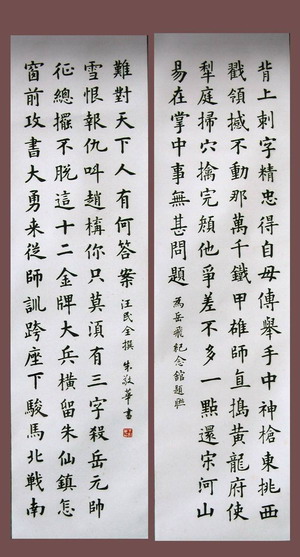 背上刺字精忠得自母傳舉手中神槍東挑西
戳領撼不動那萬千鐵甲雄師直搗黃龍府使
犁庭掃穴擒完顏他爭差不多一點還宋河山
易在掌中事無甚問題
為岳飛紀念館題聯
窗前攻書大勇來從師訓跨座下駿馬北戰南
征總擺不脫這十二金牌大兵橫留朱仙鎮怎
雪恨報仇叫趙構你只莫湏有三字殺岳元帥
難對天下人有何答案
汪民全撰 朱敬華書